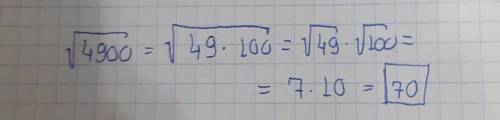 √4900 = √49·100 = √49·√100 =
= 7·10 = 70